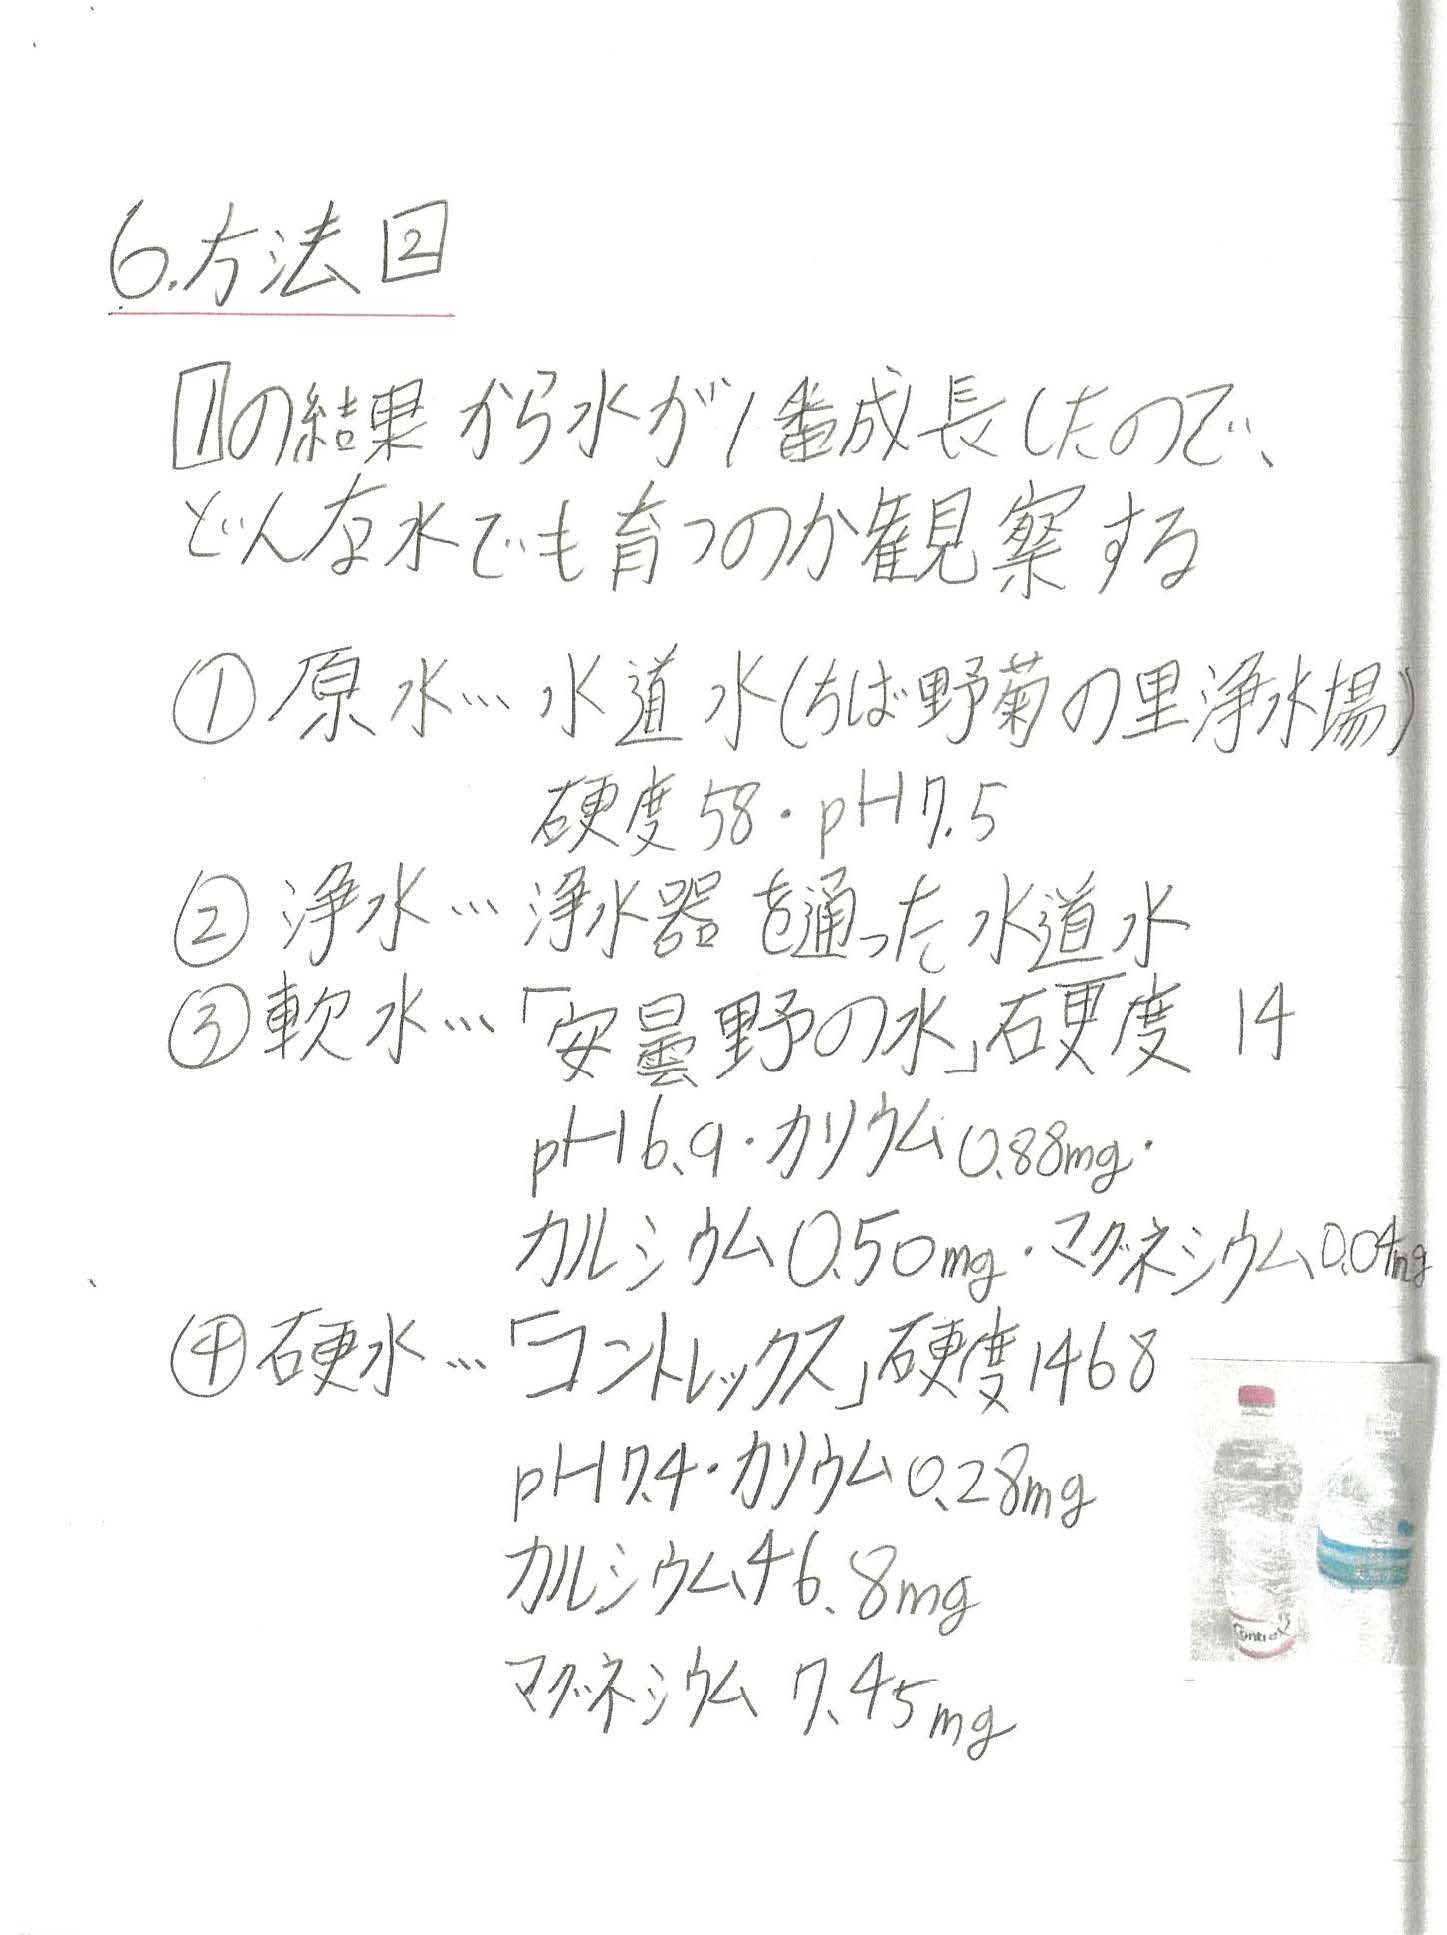 6.方法2
1の結果から水が1番成長したので、
どんな水でも育つのか観察する
①原水…水道水(ちば野菊の里浄水場)
硬度58・pH7.5
②浄水…浄水器を通った水道水
③軟水…「安曇野の水」硬度 14
pH6.9・カリウム0.88mg・
カルシウム0.50mg・マグネシウム0.04mg
④硬水…「コントレックス」硬度1468
pH7.4・カリウム0.28mg
カルシウム46.8mg
マグネシウム 7.45mg
Contrex